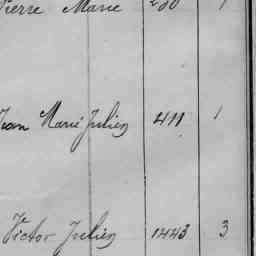 Pierre Marie 1
Jean Marie Julien 411 1
Victor Julien 1443 3